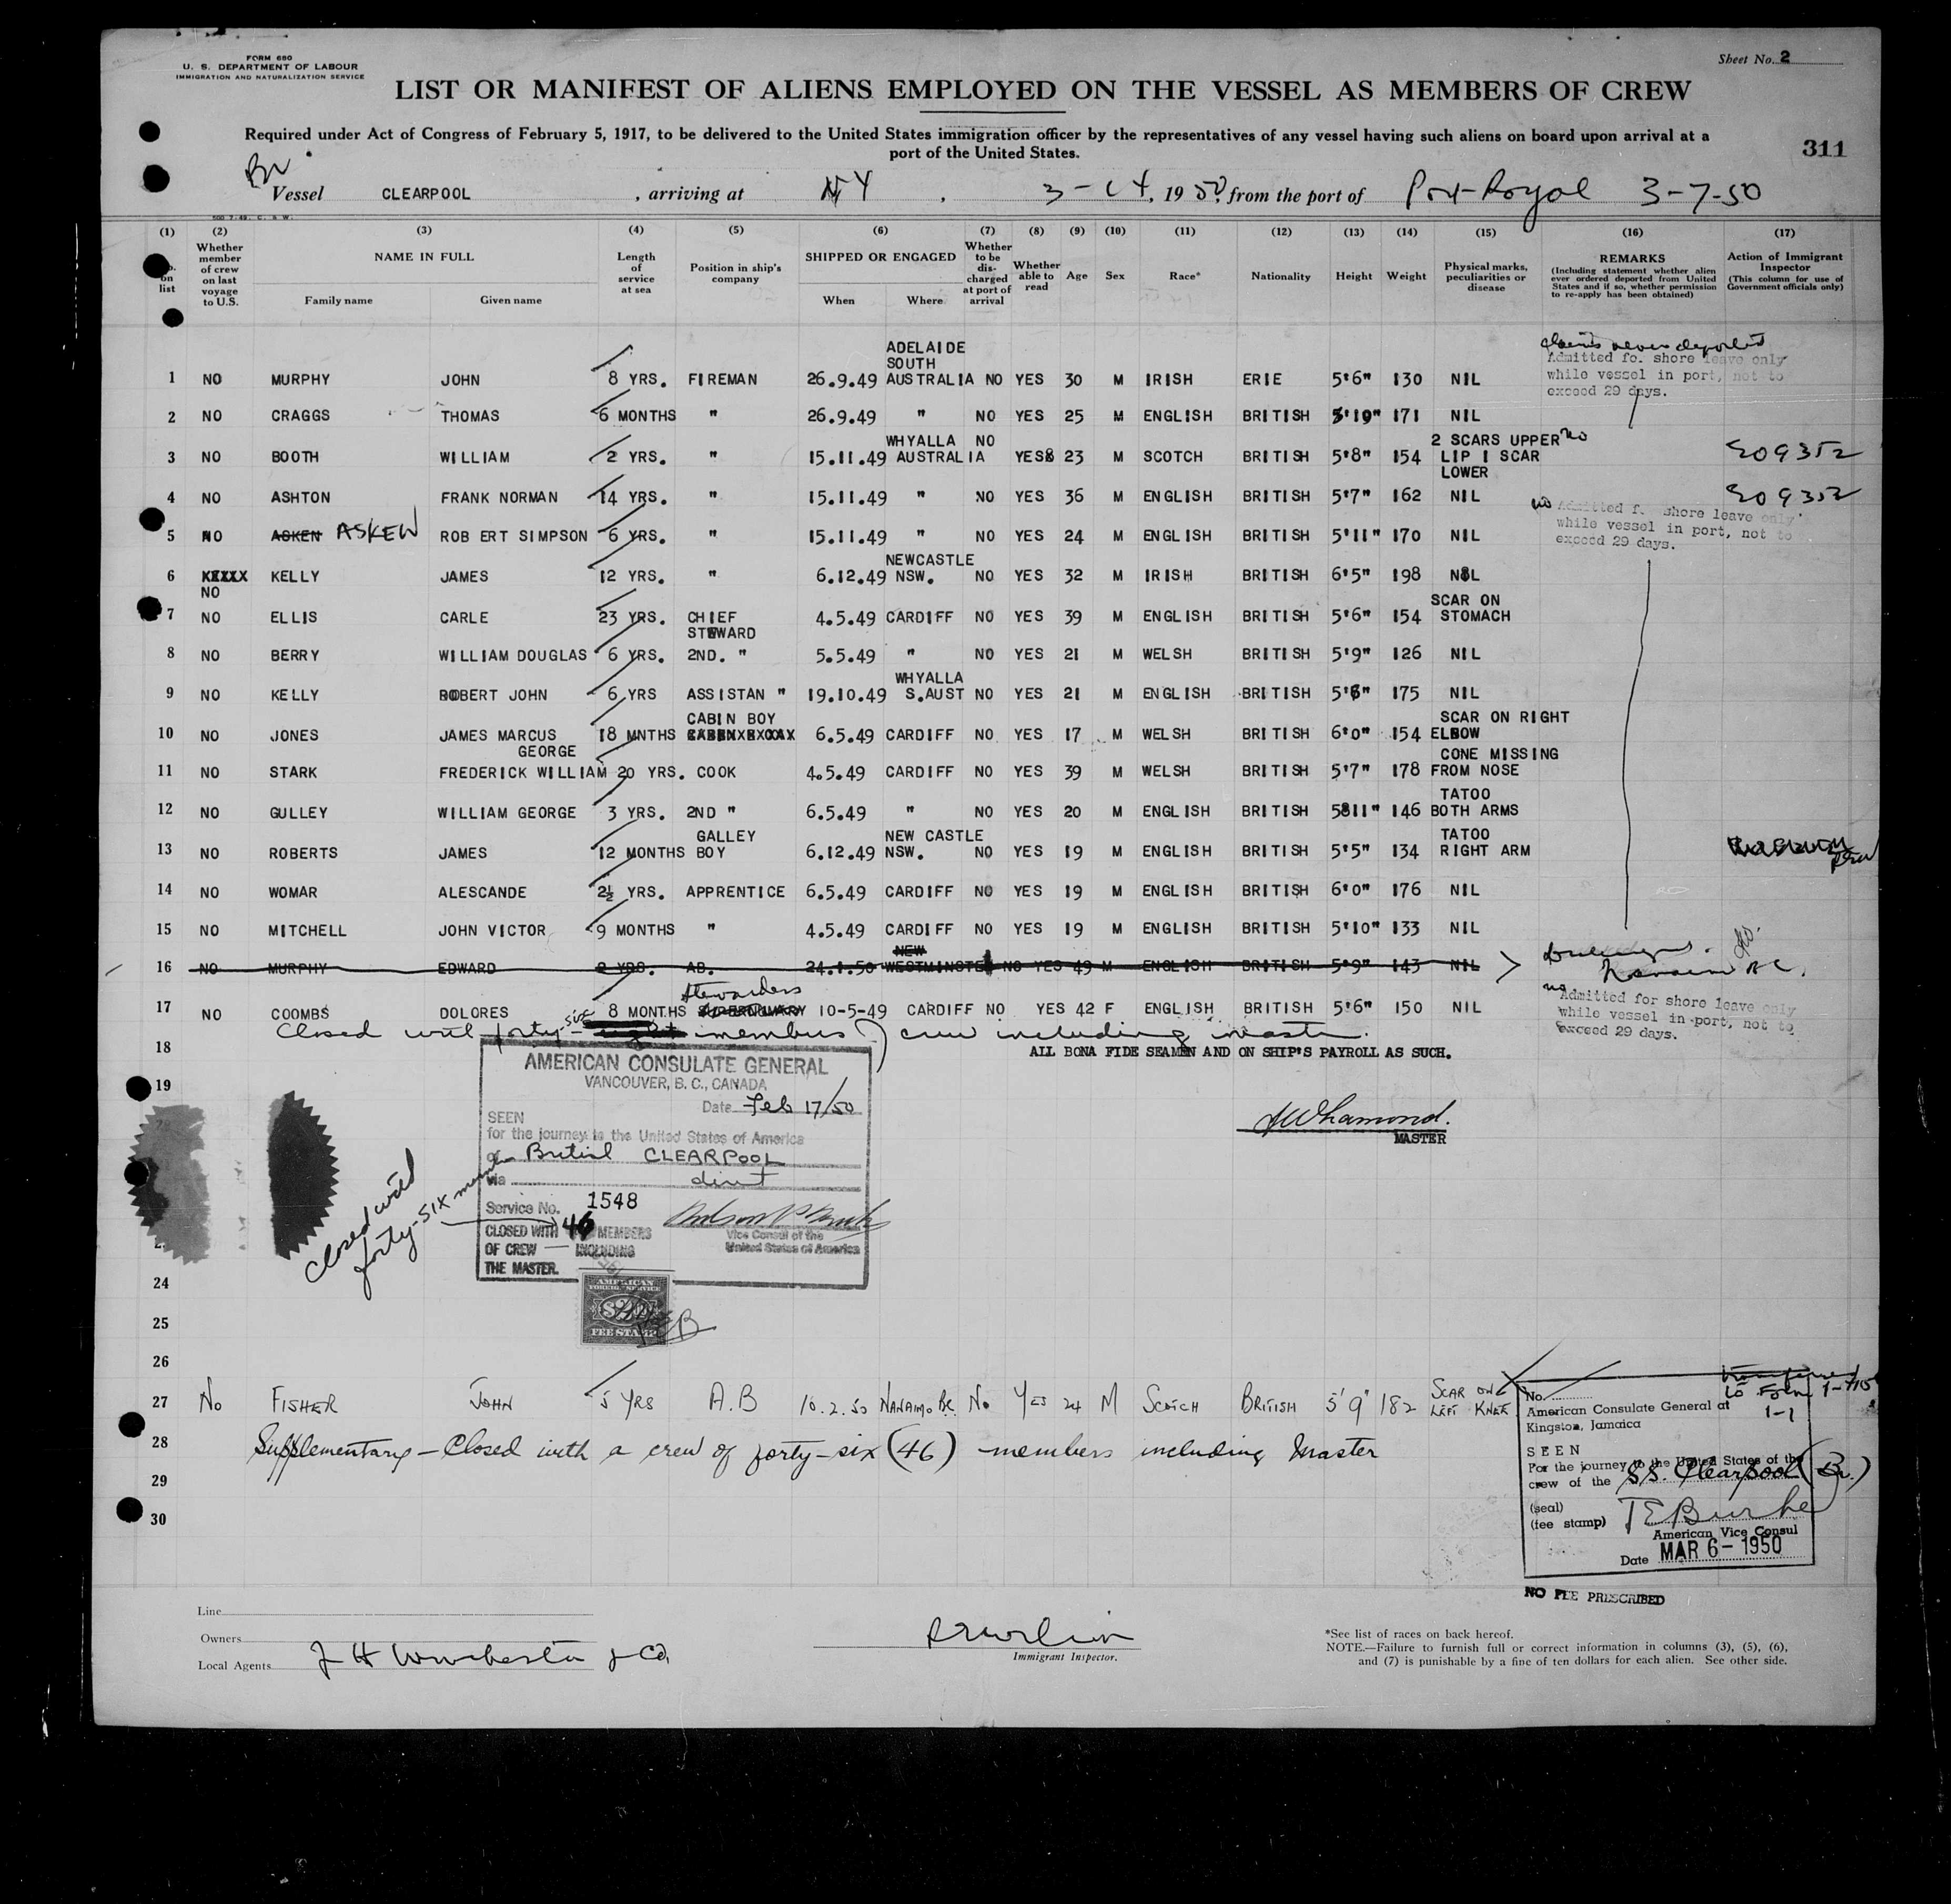 FORM 680
U. S. DEPARTMENT OF LABOUR
IMMIGRATION AND NATURALIZATION SERVICE
Sheet No. 2
LIST OR MANIFEST OF ALIENS EMPLOYED ON THE VESSEL AS MEMBERS OF CREW
Required under Act of Congress of February 5, 1917, to be delivered to the United States immigration officer by the representatives of any vessel having such aliens on board upon arrival at a
port of the United States.
311
Br
Vessel CLEARPOOL, arriving at NY, 3-14, 1950, from the port of Port Royal 3-7-50
(1) (2) (3) (4) (5) (6) (7) (8) (9) (10) (11) (12) (13) (14) (15) (16) (17)
No. on list
Whether member of crew on last voyage to U.S.
NAME IN FULL
Family name Given name
Length of service at sea
Position in ship's company
SHIPPED OR ENGAGED
When Where
Whether to be discharged at port of arrival
Whether able to read
Age
Sex
Race*
Nationality
Height
Weight
Physical marks, peculiarities or disease
REMARKS
(Including statement whether alien ever ordered deported from United States and if so, whether permission to re-apply has been obtained)
Action of Immigrant Inspector
(This column for use of Government officials only)
1 NO MURPHY JOHN 8 YRS. FIREMAN 26.9.49 ADELAIDE SOUTH AUSTRALIA NO YES 30 M IRISH ERIE 5'6" 130 NIL
never deported
Admitted fo. shore leave only
while vessel in port, not to
exceed 29 days.
2 NO CRAGGS THOMAS 6 MONTHS " 26.9.49 " NO YES 25 M ENGLISH BRITISH 5'10" 171 NIL
3 NO BOOTH WILLIAM 2 YRS. " 15.11.49 WHYALLA AUSTRALIA NO YES 23 M SCOTCH BRITISH 5'8" 154 2 SCARS UPPER LIP 1 SCAR LOWER no 909352
4 NO ASHTON FRANK NORMAN 14 YRS. " 15.11.49 " NO YES 36 M ENGLISH BRITISH 5'7" 162 NIL 909352
no Admitted f. shore leave only
while vessel in port, not to
exceed 29 days.
5 NO ASKEN ASKEW ROBERT SIMPSON 6 YRS. " 15.11.49 " NO YES 24 M ENGLISH BRITISH 5'11" 170 NIL
6 NO KELLY JAMES 12 YRS. " 6.12.49 NEWCASTLE NSW. NO YES 32 M IRISH BRITISH 6'5" 198 NIL
7 NO ELLIS CARLE 23 YRS. CHIEF STEWARD 4.5.49 CARDIFF NO YES 39 M ENGLISH BRITISH 5'6" 154 SCAR ON STOMACH
8 NO BERRY WILLIAM DOUGLAS 6 YRS. 2ND. " 5.5.49 " NO YES 21 M WELSH BRITISH 5'9" 126 NIL
9 NO KELLY ROBERT JOHN 6 YRS ASSISTAN " 19.10.49 WHYALLA S.AUST NO YES 21 M ENGLISH BRITISH 5'6" 175 NIL
10 NO JONES JAMES MARCUS 18 MNTHS CABIN BOY 6.5.49 CARDIFF NO YES 17 M WELSH BRITISH 6'0" 154 SCAR ON RIGHT ELBOW
11 NO STARK FREDERICK WILLIAM GEORGE 20 YRS. COOK 4.5.49 CARDIFF NO YES 39 M WELSH BRITISH 5'7" 178 CONE MISSING FROM NOSE
12 NO GULLEY WILLIAM GEORGE 3 YRS. 2ND " 6.5.49 " NO YES 20 M ENGLISH BRITISH 5811" 146 TATOO BOTH ARMS
13 NO ROBERTS JAMES 12 MONTHS GALLEY BOY 6.12.49 NEW CASTLE NSW. NO YES 19 M ENGLISH BRITISH 5'5" 134 TATOO RIGHT ARM
14 NO WOMAR ALESCANDE 2½ YRS. APPRENTICE 6.5.49 CARDIFF NO YES 19 M ENGLISH BRITISH 6'0" 176 NIL
15 NO MITCHELL JOHN VICTOR 9 MONTHS " 4.5.49 CARDIFF NO YES 19 M ENGLISH BRITISH 5'10" 133 NIL
16 NO MURPHY EDWARD 2 YRS. AB. 24.1.50 NEW WESTMINSTER NO YES 49 M ENGLISH BRITISH 5'9" 143 NIL
17 NO COOMBS DOLORES 8 MONTHS Stewardess 10-5-49 CARDIFF NO YES 42 F ENGLISH BRITISH 5'6" 150 NIL
no Admitted for shore leave only
while vessel in port, not to
exceed 29 days.
Closed with forty-six members crew including master.
18 ALL BONA FIDE SEAMEN AND ON SHIP'S PAYROLL AS SUCH.
19
AMERICAN CONSULATE GENERAL
VANCOUVER, B. C., CANADA
Date Feb 17/50
SEEN
for the journey to the United States of America
of British CLEARPOOL
via direct
Service No. 1548
CLOSED WITH 46 MEMBERS
OF CREW INCLUDING
THE MASTER.
Vice Consul of the
United States of America
MASTER
Closed with
forty-six
AMERICAN
FOREIGN SERVICE
FEE STAMP
24
25
26
27 No FISHER JOHN 5 YRS A.B 10.2.50 NANAIMO BC No YES 24 M SCOTCH BRITISH 5'9" 182 SCAR ON LEFT KNEE
28 Supplementary - Closed with a crew of forty-six (46) members including Master
29
30
No.
American Consulate General at
Kingston, Jamaica
SEEN
For the journey to the United States of the
crew of the SS. Clearpool (Br.)
(seal)
(fee stamp) T E Burke
American Vice Consul
Date MAR 6 - 1950
NO FEE PRESCRIBED
Line
Owners
Local Agents J H Winchester & Co.
Immigrant Inspector.
*See list of races on back hereof.
NOTE.—Failure to furnish full or correct information in columns (3), (5), (6),
and (7) is punishable by a fine of ten dollars for each alien. See other side.